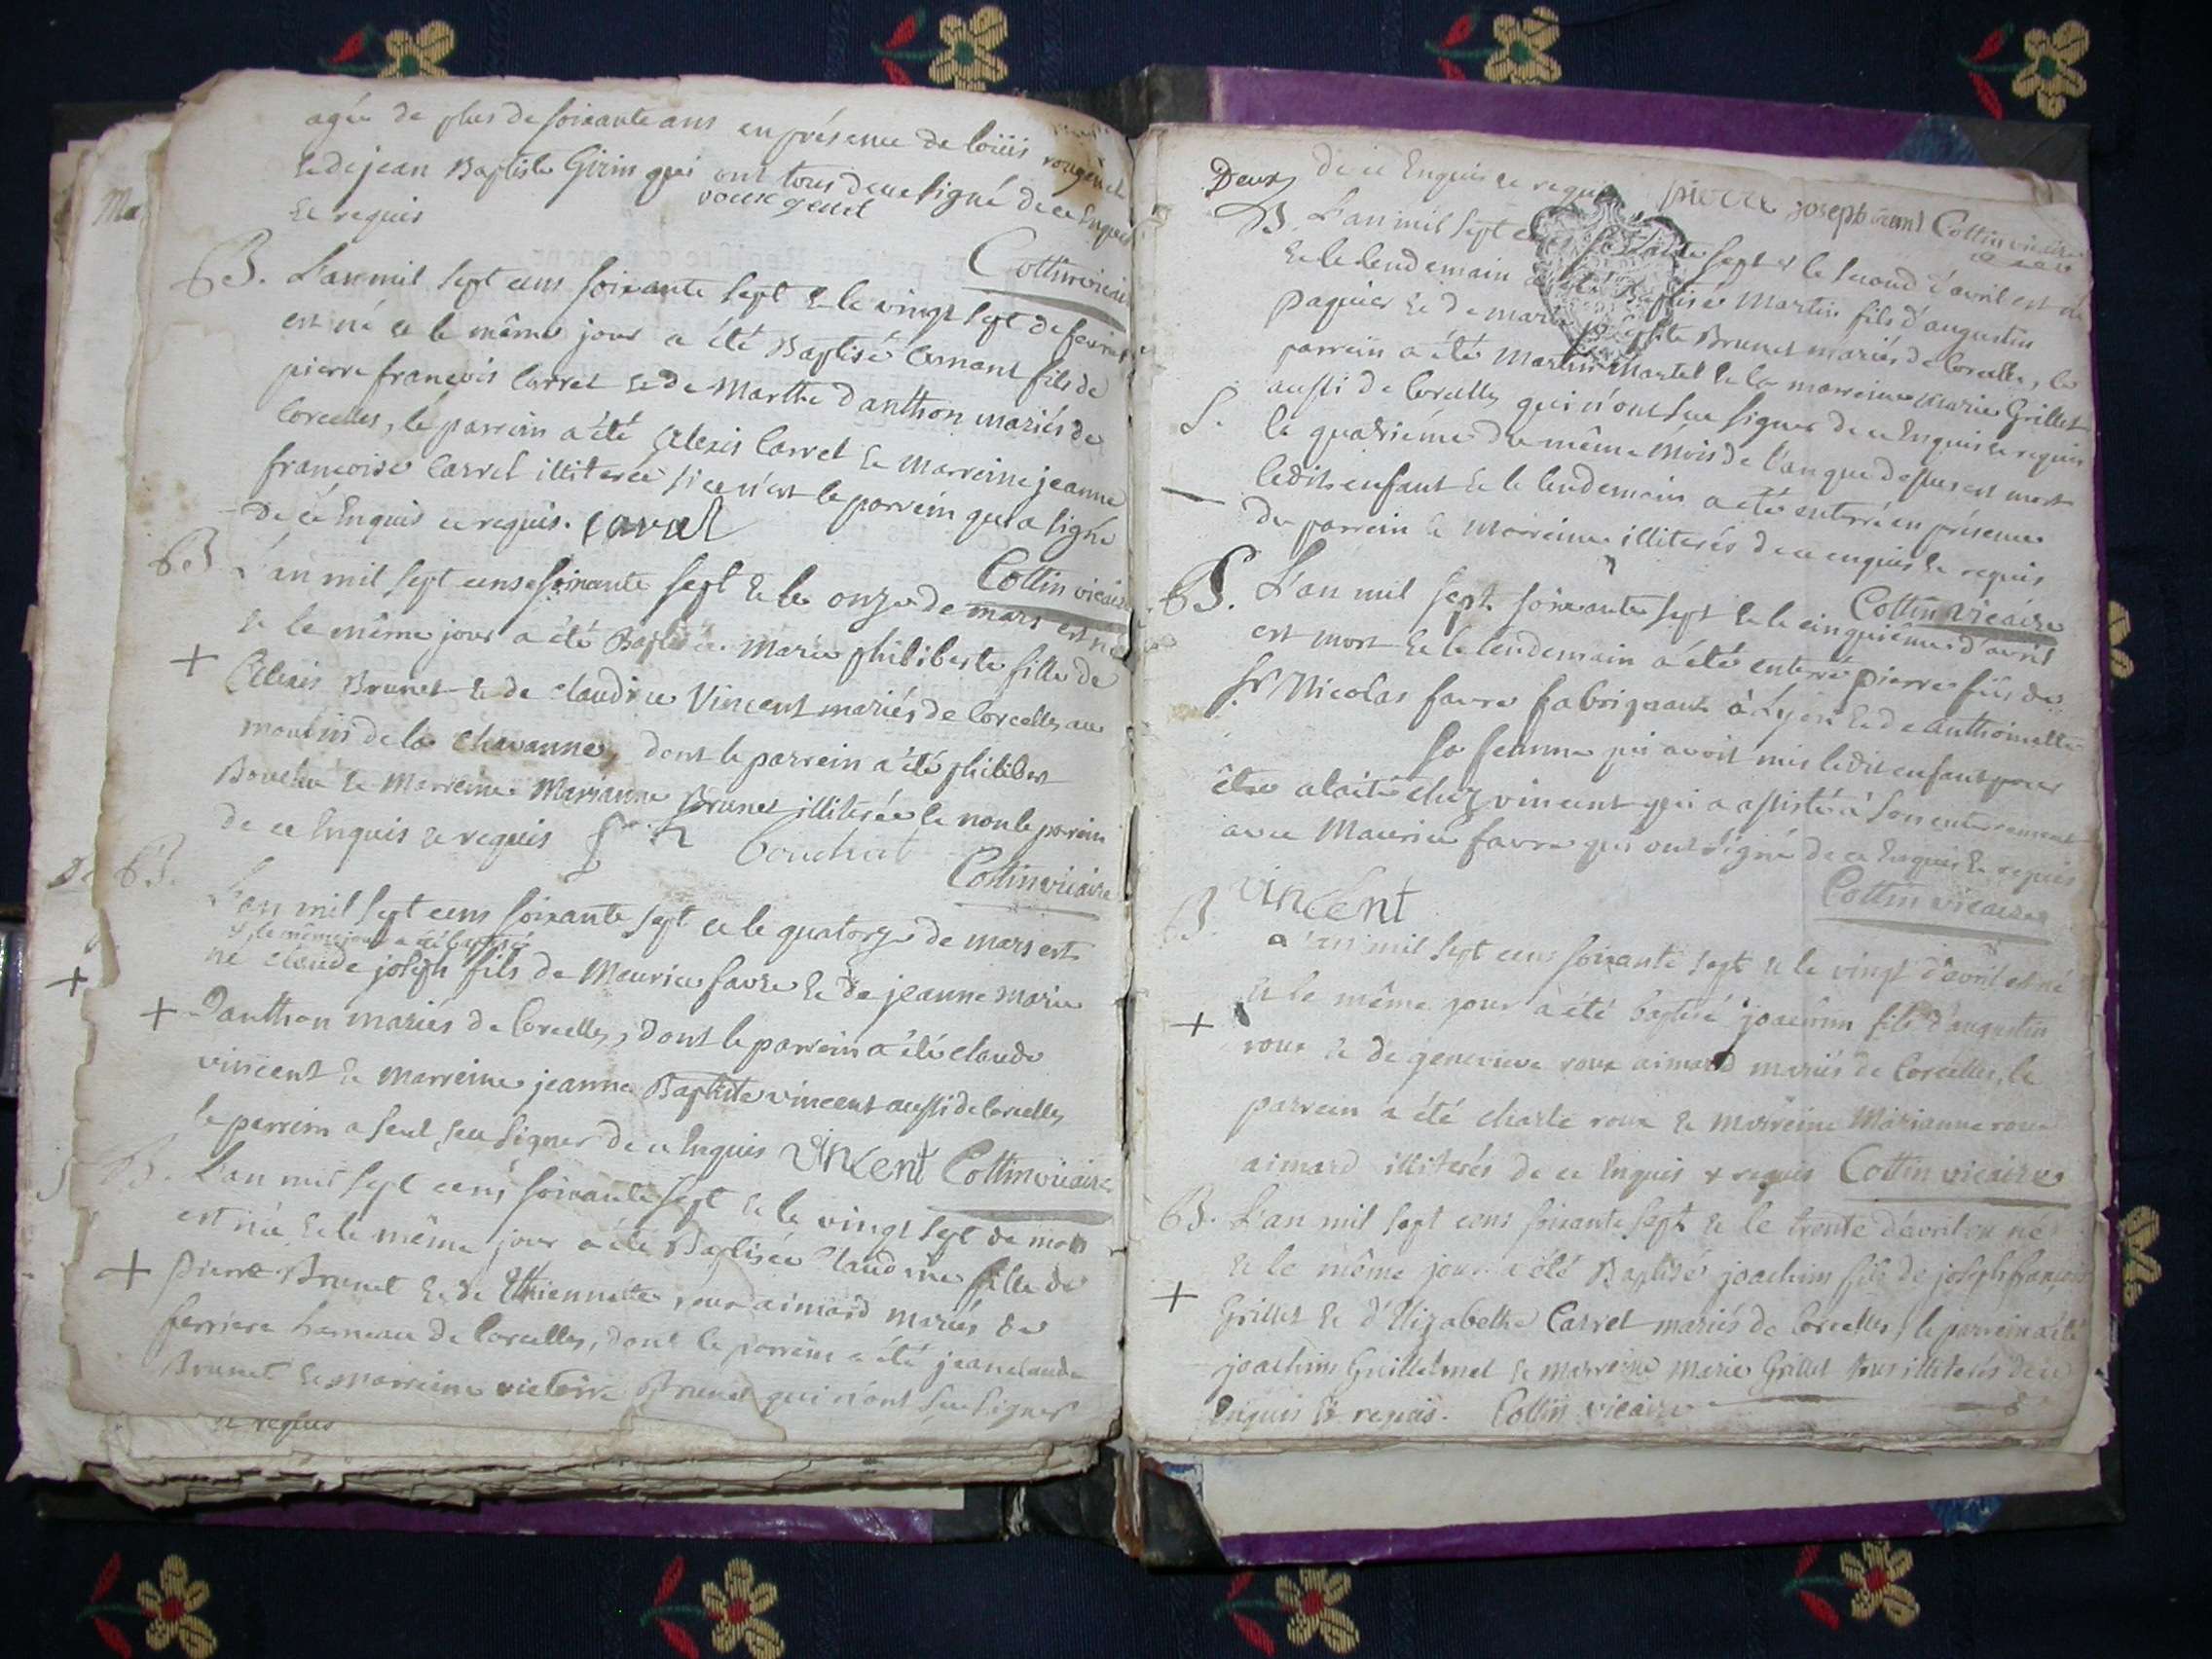 agée de plus de soixante ans en présence de loüis rougemet
& de jean Baptiste Girin qui ont tous deux signé de ce Enquis
& requis
Cottin vicaire
B. L'an mil sept cens soixante sept & le vingt sept de fevrier
est né & le même jour a été Baptisé fils de
pierre françois Carret & de Marthe danthon mariés de
Corcelles, le parrein a été Alexis Carret & Marreine jeanne
francoise Carret illiterée si ce n'est le parrein qui a signé
de ce Enquis & requis. Caret
Cottin vicaire
B L'an mil sept cens soixante sept & le onze de mars est né
& le même jour a été Baptisée Marie philiberte fille de
+
Alexis Brunet & de claudine Vincent mariés de Corcelles au
moulin de la Chavanne, dont le parrein a été philibert
Bouchu & Marreine Marianne Brunet illiterée & non le parein
de ce Enquis & requis
Cottin vicaire
B.
L'an mil sept cens soixante sept & le quatorze de mars est
& le même jour a été baptisé
né claude joseph fils de Maurice favre & de jeanne marie
+
+ Danthon mariés de Corcelles, dont le parrein a été claude
vincent & marreine jeanne Baptiste vincent aussi de Corcelles
le parrein a seul seu signer de ce Enquis Vincent Cottin vicaire
B. L'an mil sept cens soixante sept & le vingt sept de mars
est née & le même jour a été Baptisée Claudine fille de
+ Pierre Brunet & de Ethiennette roux aimard mariés de
ferriere hameau de Corcelles, dont le parrein a été jean claude
Brunet & marreine victoire Brunet qui n'ont seu signer
& requis
Deux
de ce Enquis & requis pierre joseph Cottin vicaire
B. L'an mil sept cens soixante sept & le second d'avril est né
& le lendemain a été Baptisé Martin fils d'augustin
paquier & de marie Brunet mariés de Corcelles, le
parrein a été Martin Martel & la marreine marie Grillet
aussi de Corcelles qui n'ont seu signer de ce Enquis & requis
S. le quatriéme du même Mois de l'an que dessus est mort
ledit enfant & le lendemain a été enterré en présence
du parrein & marreine illiterés de ce enquis & requis
Cottin vicaire
S. L'an mil sept soixante sept & le cinquième d'avril
est mort & le lendemain a été enterré pierre fils de
Sr. Nicolas favre fabriquant à Lyon & de anthoinette
sa femme qui avoit mis ledit enfant pour
être alaité chez vincent qui a assisté à son enterrement
avec Maurice favre qui ont signé de ce Enquis & requis
Vincent
Cottin vicaire
B.
L'an mil sept cens soixante sept & le vingt d'avril est né
& le même jour a été baptisé joachim fils d'augustin
+
roux & de genevieve roux aimard mariés de Corcelles, le
parrein a été charle roux & marreine Marianne roux
aimard illiterés de ce Enquis & requis Cottin vicaire
B. L'an mil sept cens soixante sept & le trente d'avril est né
& le même jour a été Baptisé joachim fils de joseph françois
+ Grillet & d'Elizabethe Carret mariés de Corcelles, le parrein a été
joachim Guillelmet & marreine Marie Grillet tous illiterés de ce
Enquis & requis. Cottin vicaire